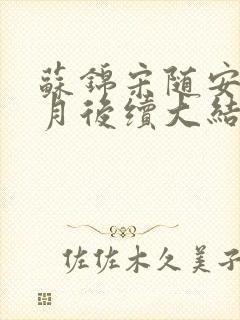 蘇錦宋随安
月後續大結
佐佐木久美子